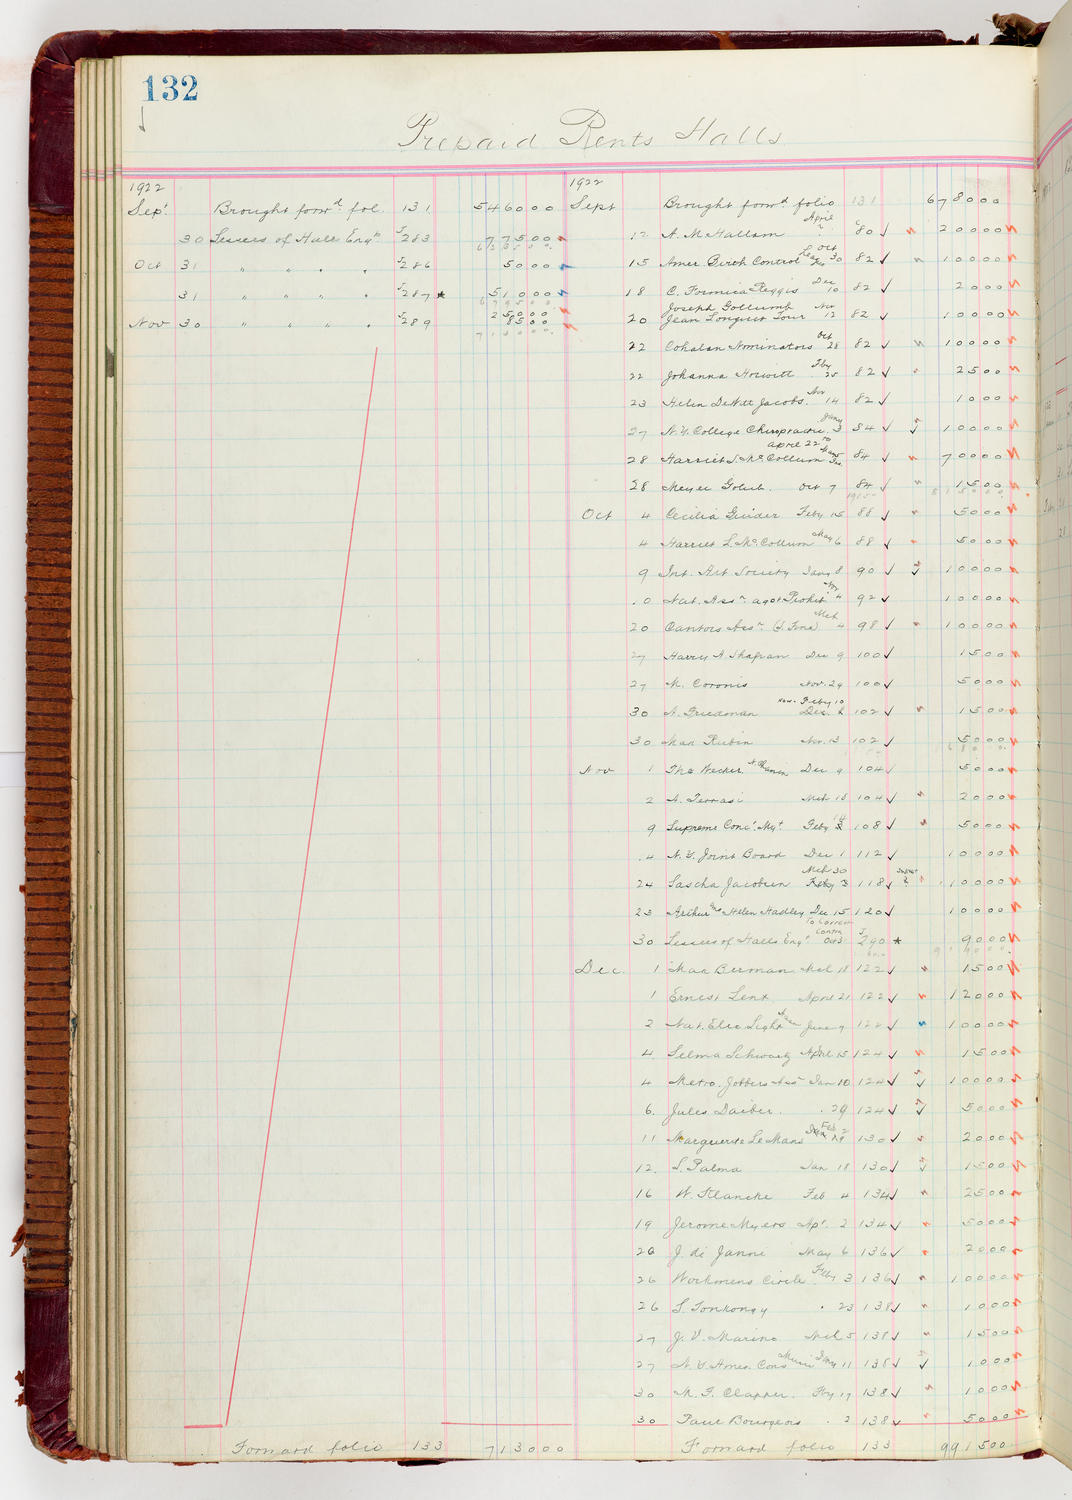 132
Prepaid Rents Halls
1922
Sept Brought forwd fol. 131 546000
30 Lessees of Halls Engts J283 77500
Oct 31 " " " " J286 5000
31 " " " " J287 * 51000
25000
Nov 30 " " " " J289 8500
Forward folio 133 713000
1922
Sept Brought forwd folio 131 678000
April
12 A. McHallam ? C80 ✓ 20000
Oct
15 Amer. Birth Control 30 82 ✓ 10000
Dec
18 C. Formica Reggis 10 82 ✓ 2000
Joseph Gollumb Nov
20 Jean Longuet Tour 12 82 ✓ 10000
Oct
22 Cohalan Nominators 28 82 ✓ 10000
Feby
22 Johanna Horwitt 25 82 ✓ 2500
Nov
23 Helen DeWitt Jacobs 14 82 ✓ 1000
Jany
27 N.Y. College Chiropractic 3 84 ✓ 10000
April 22 to
28 Harriet S. McCollum 84 ✓ 70000
28 Meyer Golub. Oct 7 84 ✓ 1500
Oct 4 Cecilia Guider Feby 15 88 ✓ 5000
4 Harriet L. McCollum May 6 88 ✓ 5000
9 Int. Art Society Jany 8 90 ✓ 10000
Nov
10 Nat. Assn. agst Prohibn 4 92 ✓ 10000
Mch
20 Cantors Assn. 4 98 ✓ 10000
27 Harry A. Shapran Dec 9 100 ✓ 1500
27 M. Coronis Nov. 29 100 ✓ 5000
Now. Feby 10
30 A. Friedman Dec. 102 ✓ 1500
30 Max Rubin Nov. 13 102 ✓ 5000
Nov 1 The Wecker Dec 9 104 ✓ 5000
2 A. Terrasi Mch 18 104 ✓ 2000
9 Supreme Conc't. Mgt. Feby 108 ✓ 5000
14 N.Y. Joint Board Dec 1 112 ✓ 10000
Mch 30
24 Sascha Jacobsen Feby 3 118 ✓ 10000
23 Arthur Mrs Helen Hadley Dec 15 120 ✓ 10000
To Correct
Contra
30 Lessees of Halls Engts Oct 31 J290 * 9000
Dec. 1 Max Berman Mch 18 122 ✓ 1500
1 Ernest Lent April 21 122 ✓ 12000
2 Nat. Elec Light Assn June 9 122 ✓ 10000
4 Selma Schwartz April 15 124 ✓ 1500
4 Metro. Jobbers Assn Jan 10 124 ✓ 10000
6. Jules Daiber. " 29 124 ✓ 5000
Feb 2
11 Marguerite LeMans 130 ✓ 2000
12. S. Palma Jan 18 130 ✓ 1500
16 W. Klancke Feb 4 134 ✓ 2500
19 Jerome Myers Apr. 2 134 ✓ 5000
26 J. de Janni May 6 136 ✓ 2000
26 Workmens Circle Feby 3 136 ✓ 10000
26 S. Tonkongy " 23 138 ✓ 1000
27 J. V. Marino Mch 5 138 ✓ 1500
27 N.Y. Amer. Cons Music Jany 11 138 ✓ 1000
30 M. F. Clapper. Feby 17 138 ✓ 1000
30 Paul Bourgeois " 2 138 ✓ 5000
Forward folio 133 991500